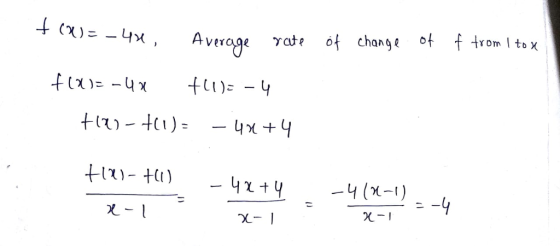 f(x) = -4x, Average rate of change of f from 1 to x
f(x) = -4x f(1) = -4
f(x) - f(1) = -4x + 4
(f(x) - f(1)) / (x - 1) = (-4x + 4) / (x - 1) = (-4(x - 1)) / (x - 1) = -4